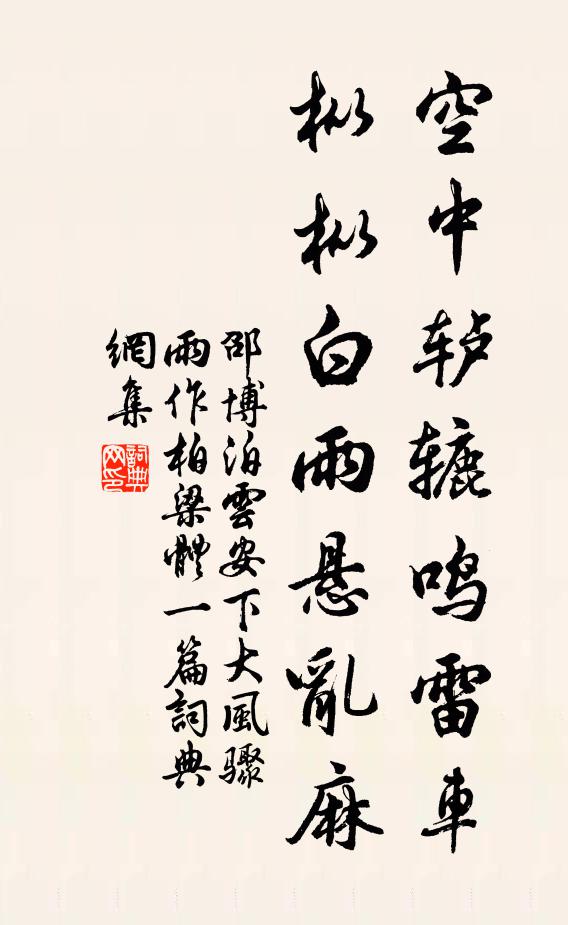 空中轳辘鸣雷車
枞枞白雨悬亂麻
邵博泊雲安下大風驟
雨作柏梁體一篇詞典
網集
詞典
网印